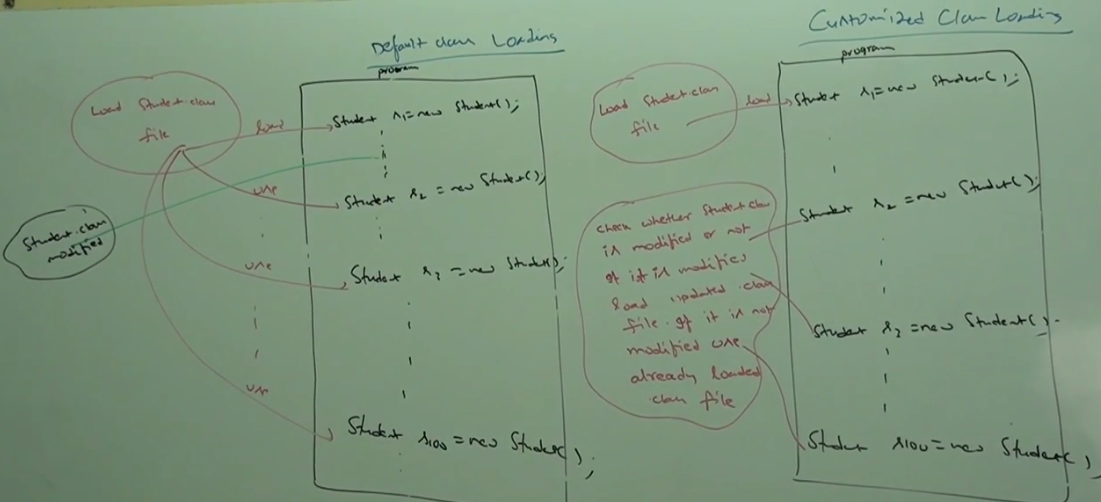 Default class Loading
program
Load Student.class
file
load
Student s1 = new Student();
use
Student s2 = new Student();
Student.class
modified
use
Student s3 = new Student();
use
Student s100 = new Student();
Customized Class Loading
program
Load Student.class
file
load
Student s1 = new Student();
Student s2 = new Student();
check whether Student.class
is modified or not
if it is modified
load updated .class
file. if it is not
modified use
already loaded
class file
Student s3 = new Student();
Student s100 = new Student();